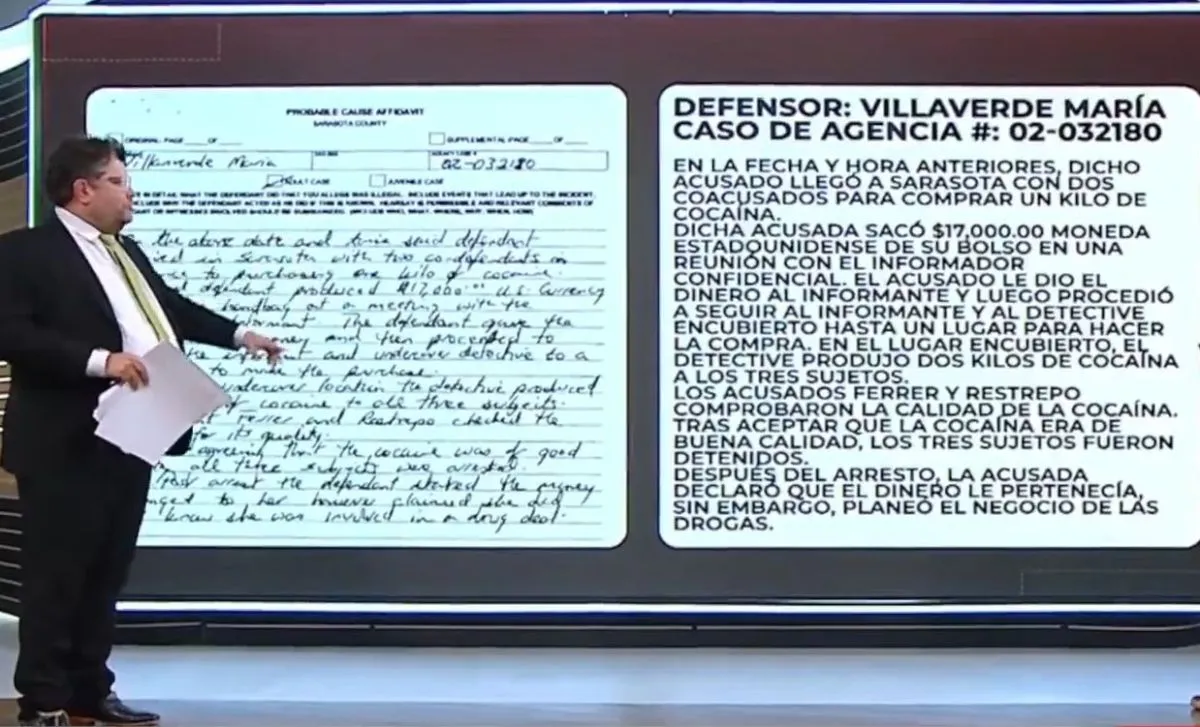 PROBABLE CAUSE AFFIDAVIT
SARASOTA COUNTY
ORIGINAL PAGE ___ OF ___
SUPPLEMENTAL PAGE ___ OF ___
Villaverde Maria
02-032180
ADULT CASE
JUVENILE CASE
IN DETAIL WHAT THE DEFENDANT DID THAT YOU ALLEGE WAS ILLEGAL. INCLUDE EVENTS THAT LEAD UP TO THE INCIDENT.
WHY THE DEFENDANT ACTED AS HE DID IF THIS IS KNOWN. HEARSAY IS PERMISSIBLE AND RELEVANT COMMENTS OF
OR WITNESSES INVOLVED SHOULD BE SUMMARIZED. (INCLUDE WHO, WHAT, WHERE, WHY, WHEN, HOW)
the above date and time said defendant
in Sarasota with two co-defendants in
to purchasing one kilo of cocaine.
defendant produced $17,000.00 U.S. Currency
handbag at a meeting with the
The defendant gave the
money and then proceeded to
and undercover detective to a
to make the purchase.
undercover location the detective produced
of cocaine to all three subjects.
Ferrer and Restrepo checked the
for its quality.
agreeing that the cocaine was of good
all three subjects was arrested.
Post arrest the defendant stated the money
to her however claimed she did
know she was involved in a drug deal.
DEFENSOR: VILLAVERDE MARÍA
CASO DE AGENCIA #: 02-032180
EN LA FECHA Y HORA ANTERIORES, DICHO
ACUSADO LLEGÓ A SARASOTA CON DOS
COACUSADOS PARA COMPRAR UN KILO DE
COCAÍNA.
DICHA ACUSADA SACÓ $17,000.00 MONEDA
ESTADOUNIDENSE DE SU BOLSO EN UNA
REUNIÓN CON EL INFORMADOR
CONFIDENCIAL. EL ACUSADO LE DIO EL
DINERO AL INFORMANTE Y LUEGO PROCEDIÓ
A SEGUIR AL INFORMANTE Y AL DETECTIVE
ENCUBIERTO HASTA UN LUGAR PARA HACER
LA COMPRA. EN EL LUGAR ENCUBIERTO, EL
DETECTIVE PRODUJO DOS KILOS DE COCAÍNA
A LOS TRES SUJETOS.
LOS ACUSADOS FERRER Y RESTREPO
COMPROBARON LA CALIDAD DE LA COCAÍNA.
TRAS ACEPTAR QUE LA COCAÍNA ERA DE
BUENA CALIDAD, LOS TRES SUJETOS FUERON
DETENIDOS.
DESPUÉS DEL ARRESTO, LA ACUSADA
DECLARÓ QUE EL DINERO LE PERTENECÍA,
SIN EMBARGO, PLANEÓ EL NEGOCIO DE LAS
DROGAS.